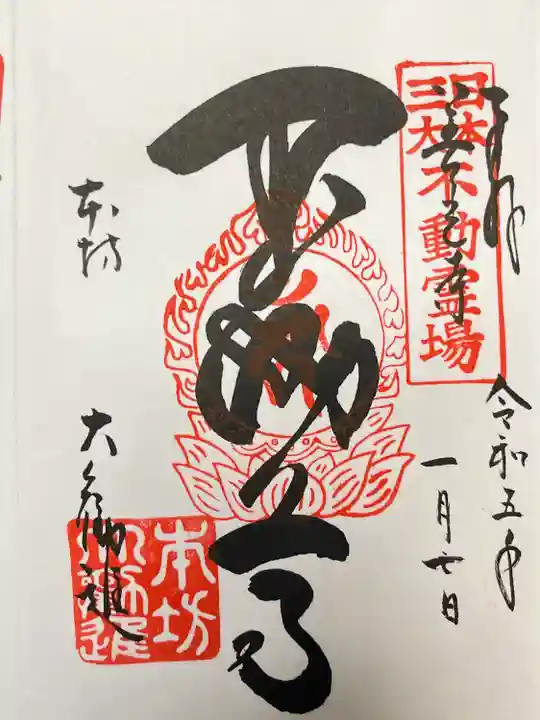 奉拝
日本
三大
不動霊場
令和五年
一月七日
不動尊
本坊
大勧進
本坊